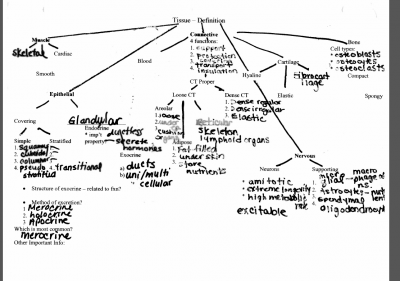 Tissue - Definition
Muscle
Connective
Bone
skeletal
Cardiac
4 functions:
Cell types:
1. support
osteoblasts
2. protection
osteocytes
3.
osteoclasts
4. transport
insulation
Smooth
Blood
Cartilage
CT Proper
Hyaline
Fibrocartilage
Compact
Epithelial
Loose CT
Dense CT
Elastic
Spongy
Glandular
Areolar
1. Dense regular
2. Dense irregular
3. Elastic
Covering
Endocrine
1. loose
Reticular
Simple
Stratified
ductless
2. under
skeleton
1. squamous
secrete
3. cushion
lymphoid organs
2. cuboidal
hormones
Adipose
3. columnar
Exocrine
1. Fat filled
4. pseudo
transitional
a) ducts
2. under skin
stratified
b) uni/multi
3. store
cellular
nutrients
Nervous
Neurons
Supporting
• Structure of exocrine – related to fun?
• amitotic
• extreme longevity
• high metabolic
rate
• Method of excretion?
1. Merocrine
2. holocrine
3. Apocrine
excitable
Which is most common?
merocrine
Other Important Info: